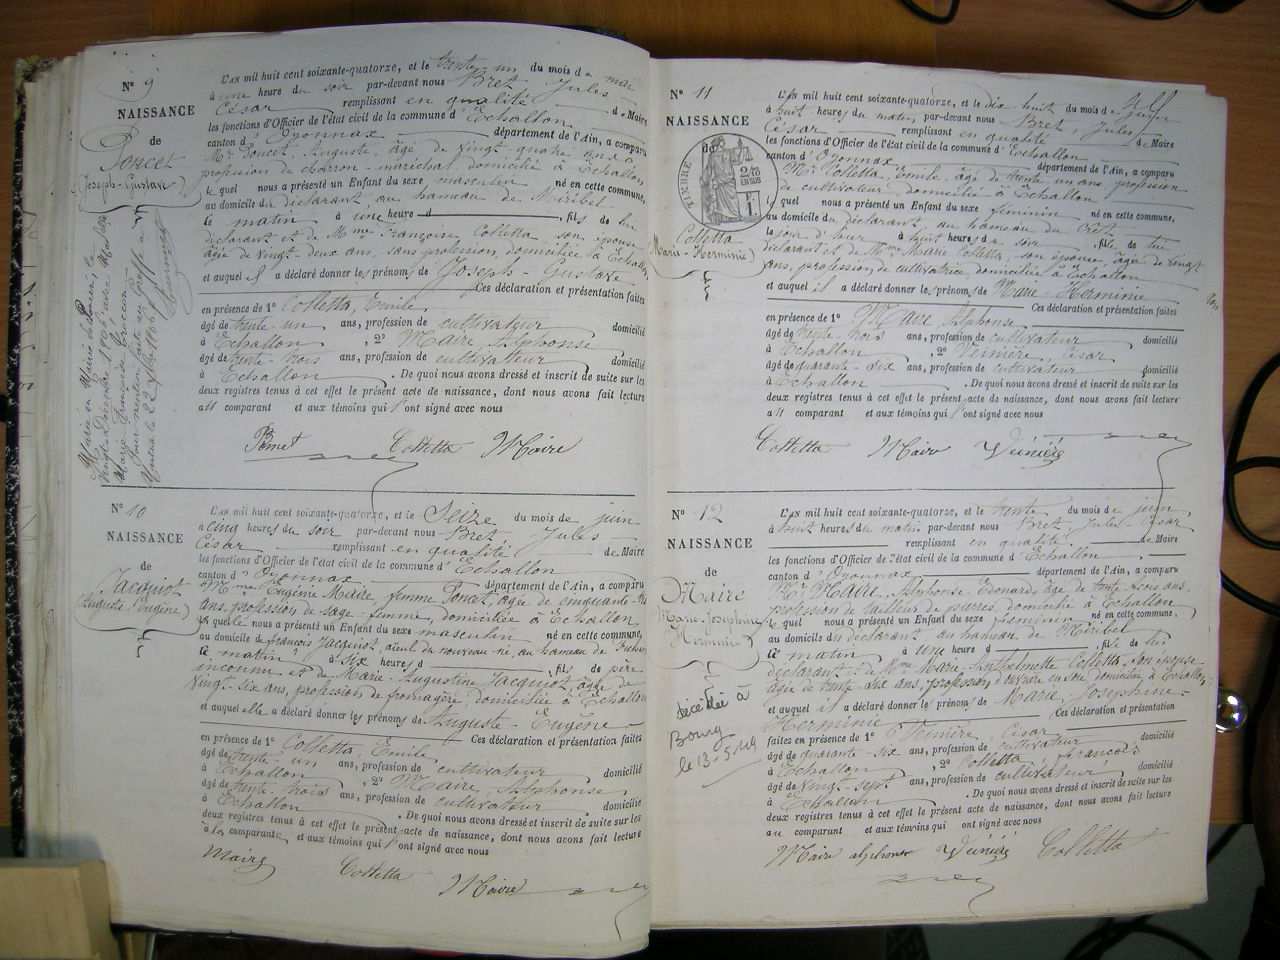 N° 9
NAISSANCE
de
Poncet
(Joseph-Gustave)
L'an mil huit cent soixante-quatorze, et le trente un du mois de mai
à une heure du soir par-devant nous Bret, Jules
César remplissant en qualité de Maire
les fonctions d'Officier de l'état civil de la commune d'Echallon
canton d'Oyonnax département de l'Ain, a comparu
Mr Poncet, Auguste, âgé de vingt-quatre ans
profession de charron-maréchal domicilié à Echallon
lequel nous a présenté un Enfant du sexe masculin né en cette commune,
au domicile du déclarant au hameau de Miribel
le matin à une heure d , fils de lui
déclarant et de Mme Françoise Colletta, son épouse
âgée de vingt-deux ans, sans profession, domiciliée à Echallon
et auquel il a déclaré donner les prénoms de Joseph-Gustave
Ces déclaration et présentation faites
en présence de 1° Colletta, Emile
âgé de trente-un ans, profession de cultivateur domicilié
à Echallon , 2° Maire, Alphonse
âgé de trente-trois ans, profession de cultivateur domicilié
à Echallon . De quoi nous avons dressé et inscrit de suite sur les
deux registres tenus à cet effet le présent acte de naissance, dont nous avons fait lecture
au comparant et aux témoins qui l'ont signé avec nous
Poncet Colletta Maire
Marié en Mairie de
vingt-
Marie Françoise
N° 10
NAISSANCE
de
Jacquiot
(Auguste-Eugène)
L'an mil huit cent soixante-quatorze, et le Seize du mois de juin
à cinq heures du soir par-devant nous Bret, Jules
César remplissant en qualité de Maire
les fonctions d'Officier de l'état civil de la commune d'Echallon
canton d'Oyonnax département de l'Ain, a comparu
Mme Eugénie Maire, femme Poncet, âgée de cinquante-
ans, profession de sage-femme, domiciliée à Echallon
laquelle nous a présenté un Enfant du sexe masculin né en cette commune,
au domicile de François Jacquiot, aïeul du nouveau-né, au hameau de
le matin à six heures d , fils de père
inconnu et de Marie-Augustine Jacquiot, âgée de
vingt-six ans, profession de fromagère, domiciliée à Echallon
et auquel elle a déclaré donner les prénoms de Auguste-Eugène
Ces déclaration et présentation faites
en présence de 1° Colletta, Emile
âgé de trente-un ans, profession de cultivateur domicilié
à Echallon , 2° Maire, Alphonse,
âgé de trente-trois ans, profession de cultivateur domicilié
à Echallon . De quoi nous avons dressé et inscrit de suite sur les
deux registres tenus à cet effet le présent acte de naissance, dont nous avons fait lecture
à la comparante et aux témoins qui l'ont signé avec nous
Maire Colletta Maire
N° 11
NAISSANCE
de
TIMBRE
Colletta
(Marie-Herminie)
L'an mil huit cent soixante-quatorze, et le dix huit du mois de juin
à huit heures du matin par-devant nous Bret, Jules
César remplissant en qualité de Maire
les fonctions d'Officier de l'état civil de la commune d'Echallon
canton d'Oyonnax département de l'Ain, a comparu
Mr Colletta, Emile âgé de trente un ans profession
de cultivateur domicilié à Echallon
lequel nous a présenté un Enfant du sexe féminin né en cette commune,
au domicile du déclarant, au hameau du Crêt
le soir d'hier à huit heures du soir , fille de lui
déclarant et de Mme Marie Colletta, son épouse, âgée de vingt
ans, profession de cultivatrice domiciliée à Echallon
et auquel il a déclaré donner les prénoms de Marie-Herminie
Ces déclaration et présentation faites
en présence de 1° Maire, Alphonse
âgé de trente trois ans, profession de cultivateur domicilié
à Echallon , 2° Veinière, César
âgé de quarante-six ans, profession de cultivateur domicilié
à Echallon . De quoi nous avons dressé et inscrit de suite sur les
deux registres tenus à cet effet le présent acte de naissance, dont nous avons fait lecture
au comparant et aux témoins qui l'ont signé avec nous
Colletta Maire Veinière
N° 12
NAISSANCE
de
Maire
(Marie-Joséphine
Herminie)
décédée à
Bourg
le 13.5.49
L'an mil huit cent soixante-quatorze, et le trente du mois de juin,
à huit heures du matin par-devant nous Bret, Jules César
remplissant en qualité de Maire
les fonctions d'Officier de l'état civil de la commune d'Echallon
canton d'Oyonnax département de l'Ain, a comparu
Mr Maire, Alphonse-Edouard, âgé de trente trois ans
profession de tailleur de pierres, domicilié à Echallon
lequel nous a présenté un Enfant du sexe féminin né en cette commune,
au domicile du déclarant, au hameau de Miribel
le matin à une heure d , fille de lui
déclarant et de Mme Marie-Anthelmette Colletta, son épouse
âgée de trente-six ans, profession d'ouvrière en soie, domiciliée à Echallon,
et auquel il a déclaré donner les prénoms de Marie, Joséphine-
Herminie Ces déclaration et présentation
faites en présence de 1° Veinière, César
âgé de quarante-six ans, profession de cultivateur domicilié
à Echallon , 2° Colletta François
âgé de vingt-sept ans, profession de cultivateur domicilié
à Echallon . De quoi nous avons dressé et inscrit de suite sur les
deux registres tenus à cet effet le présent acte de naissance, dont nous avons fait lecture
au comparant et aux témoins qui ont signé avec nous
Maire alphonse Veinière Colletta